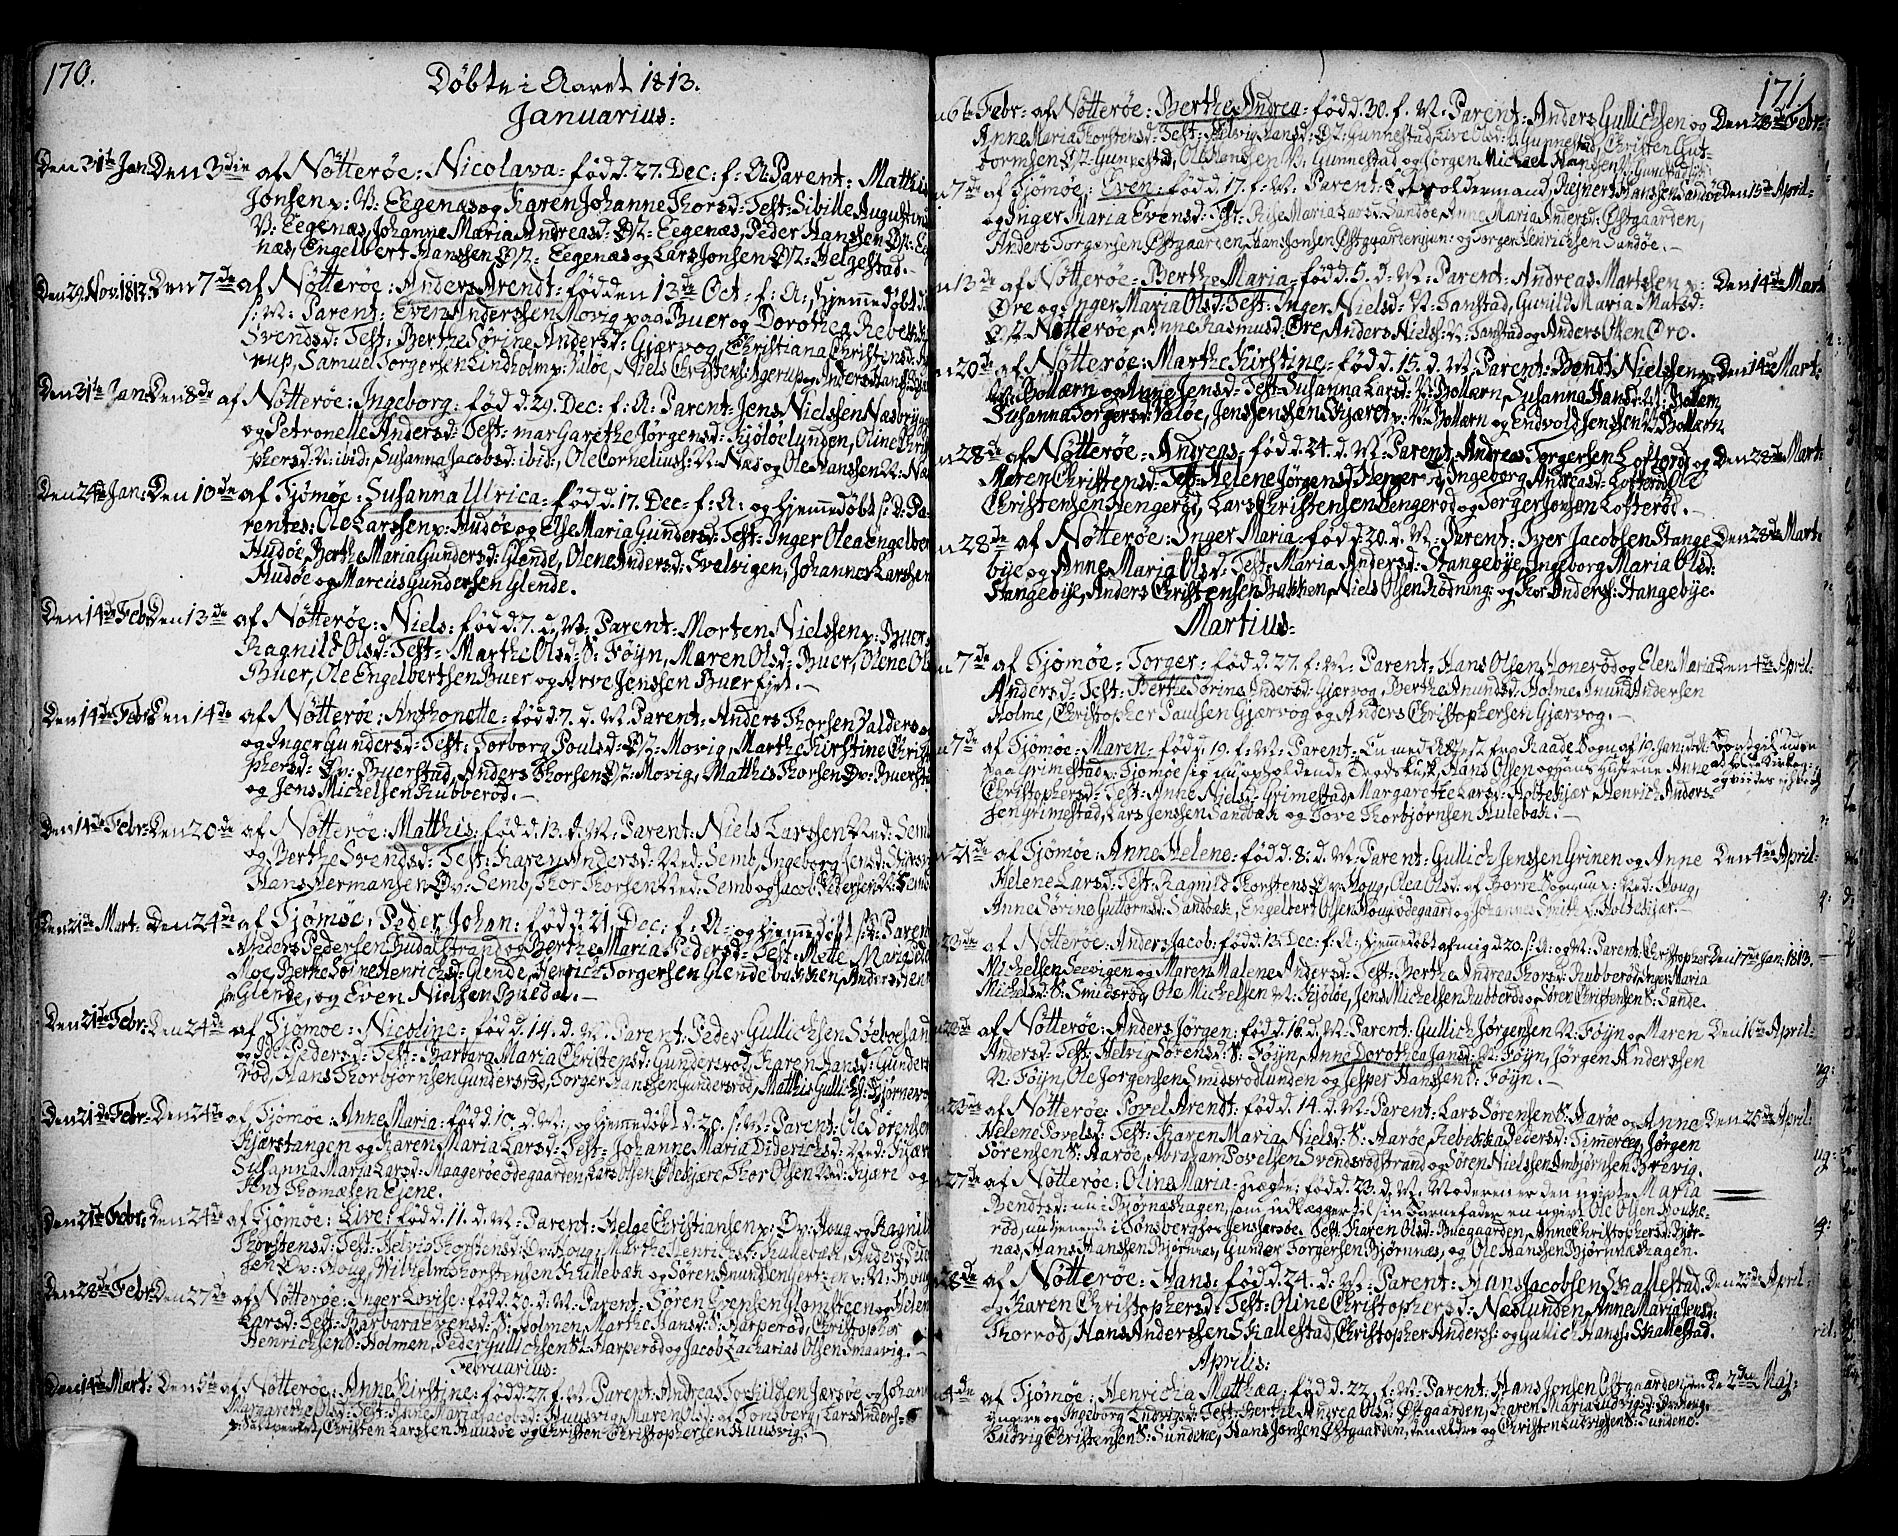 170.
Döbte i Aaret 1813.
Januarius:
Den 31te Jan: Den 3die af Nötteröe: Nicolava: född. 27. Dec: f: A: Parent: Matthis
Jonsen p: N: Eegenæs og Karen Johanne Thorsd: Test: Sibille Augustin
N: Eegenæs, Johanne Maria Andreasd: Ø/2: Eegenæs, Peder Hanssen Ø/2: Ee
næs, Engelbert Hanssen Ø/2: Eegenæs og Lars Jonsen Ø/2: Helgestad.
Den 29. Nov: 1812: Den 7de af Nötteröe: Anders Arendt: född den 13de Oct: f: A: hjemmedöbt d.
s: M: Parent: Even Anderssen Movig paa Buer og Dorothea Rebekka
Svendsd: Test: Berthe Sörine Andersd: Gjærvog, Christiana Christensd:
rup, Samuel Torgersen Lindholm p: Valöe, Niels Christens: Agerup og Anders Hans
Den 31te Jan: Den 8de af Nötteröe: Ingeborg: född. 29. Dec: f: A: Parent: Jens Nielssen Næsbrygge
og Petronelle Andersd: Test: Margarethe Jörgensd: Kjölöelunden, Oline Chris
phersd: N: ibid:, Susanna Jacobsd: ibid:, Ole Cornelius: N: Næs og Ole Hanssen N: Næ
Den 24de Jan: Den 10de af Tjömöe: Susanna Ulrica: född. 17. Dec: f: A: og hjemmedöbt s: D: Pa-
rentes: Ole Larssen p: Hudöe og Else Maria Gundersd: Test: Inger Olea Engelber
Hudöe, Berthe Maria Gundersd: Glende, Olene Andersd: Svelvigen, Johannes Larssen
Hudöe og Marcus Gundersen Glende.
Den 14de Febr: Den 13de af Nötteröe: Niels: född. 7. d: M: Parent: Morten Nielssen p: Buer
Ragnild Olsd: Test: Marthe Olsd: S: Föyn, Maren Olsd: Buer, Olene Ol
Buer, Ole Engelbertsen Buer og Arve Jenssen Buerfjel.
Den 14de Febr: Den 14de af Nötteröe: Anthonette: född. 7. d. M: Parent: Anders Thorsen Valders
og Inger Gundersd: Test: Torborg Poulsd: Ø/2: Movig, Marthe Kirstine Christ
phersd: Øv: Buerstad, Anders Thorsen Ø/2: Movig, Matthis Thorsen Øv: Buersta
og Jens Michelsen Rubberöd.
Den 14de Febr: Den 20de af Nötteröe: Matthis: född. 13. d. M: Parent: Niels Larssen Ned: Sem
og Berthe Svendsd: Test: Karen Andersd: Ned: Semb, Ingeborg Jensd:
Hans Hermansen Øv: Semb, Thor Thorsen Ned: Semb og Jacob Pedersen N: Semb
Den 21de Mart: Den 24de af Tjömöe: Peder Johan: född. 21. Dec: f: A: og hjemmedöbt s: D: Paren
Anders Pedersen Budalstrand og Berthe Maria Pedersd: Test: Mette Maria
Moe, Berthe Sörine Henrichsd: Glende, Henrich Torgersen Glendebakken, Anders Hen
sen Glende, og Even Nielsen Budal.
Den 21de Febr: Den 24de af Tjömöe: Nicoline: född. 14. d. M: Parent: Peder Gullichsen Söeboesand
og Ide Pedersd: Test: Barbara Maria Christensd: Gundersröd, Karen Hansd: Gunders
röd, Hans Thorbjörnsen Gundersröd, Torger Hanssen Gundersröd, Matthis Gulli: Bjørner
Den 21de Febr: Den 24de af Tjömöe: Anne Maria: född. 10. d: M:, og hjemmedöbt d. 20. s: M: Parent: Ole Sörensen
Kjærstangen og Karen Maria Larsd: Test: Johanne Maria Diderichsd: Ned: Kjær
Susanna Maria Larsd: Maageröeödegaarden, Lars Olsen Kjære, Thor Olsen Ned: Kjære og
Jens Thomæsen Ejene.
Den 21de Febr: Den 24de af Tjömöe: Live: född. 11. d. M: Parent: Helge Christiansen p: Øv: Houg og Ragnild
Thorstensd: Test: Helvig Thorstensd: Øv: Houg, Marthe Henrichsd: Kullebæk, Anders
sen Øv: Houg, Wilhelm Thorstensen Kullebæk og Sören Anundsen
Den 28de Febr: Den 27de af Nötteröe: Inger Lovise: född. 20. d. M: Parent: Sören Evensen Glomsteen og Helen
Larsd: Test: Barbara Evensd: S: Holmen, Marthe Hansd: S: Harperöd, Christopher
Henrichsen S: Holmen, Peder Gullichsen S: Harperöd og Jacob Zacharias Olsen Smaavig.
Februarius:
Den 14de Mart: Den 5te af Nötteröe: Anne Kirstine: född. 27. f: M: Parent: Andreas Torkildsen Jærsöe og Johanne
Margarethe Olsd: Test: Anne Maria Jacobsd: Huusvig, Maren Olsd: af Tönsberg, Lars Anders:
p: Saltpynten, Christen Larssen Huusöe og Christen Christophersen Huusvig.
171.
6te Febr: af Nötteröe: Berthe Andrea: född. 30. f. M: Parent: Anders Gullichsen og Den 28de Febr:
Anne Maria Thorstensd: Test: Helvig Hansd: Ø/2: Gunnestad, Live Olsd: N: Gunnestad, Christen Gut-
tormsen Ø/2: Gunnestad, Ole Hanssen N: Gunnestad og Jörgen Michael Hanssen N: Gunnestad.
7de af Tjömöe: Even: född. 17. f. M: Parent: Lotsoldermand Regnert Hanssen Sandöe Den 15de April:
og Inger Maria Evensd: Test: Else Maria Larsd: Sandöe, Anne Maria Andersd: Østgaarden,
Anders Torgersen Østgaarden, Hans Jonsen Østgaarden jun: og Torger Henrichsen Sandöe.
13de af Nötteröe: Berthe Maria: född. 5. d. M: Parent: Andreas Martesen p: Den 14de Mart:
Øre og Inger Maria Olsd: Test: Inger Nielsd: N: Tanstad, Gunild Maria Matsd:
Ø/2: Nötteröe, Anne Rasmusd: Øre, Anders Niels: N: Tanstad og Anders Olsen Øre.
20de af Nötteröe: Marthe Kirstine: född. 15. d. M: Parent: Bendt Nielssen p: Den 14de Mart:
N: Bollærn og Anne Jensd: Test: Susanna Larsd: N: Bollærn, Susanna Hansd: M: Bollærn,
Susanna Torgersd: Valöe, Jens Jenssen Kjæret p: N: Bollærn og Endvold Jenssen N: Bollærn.
28de af Nötteröe: Andreas: född. 24. d. M: Parent: Andreas Torgersen Lofteröd og Den 28de Mart:
Maren Christensd: Test: Helene Jörgensd: Hengeröd, Ingeborg Andreasd: Lofteröd, Ole
Christensen Hengeröd, Lars Christensen Hengeröd og Torger Jonsen Lofteröd.
28de af Nötteröe: Inger Maria: född. 20. d. M: Parent: Iver Jacobsen Stange Den 28de Mart:
bÿe og Anne Maria Olsd: Test: Maria Andersd: Stangebÿe, Ingeborg Maria Olsd:
Stangebÿe, Anders Christensen Bakken, Niels Olsen Rödning: og Thor Anders: Stangebÿe.
Martius:
7de af Tjömöe: Torger: född. 27. f. M: Parent: Hans Olsen Honeröd og Elen Maria Den 4de April:
Andersd: Test: Berthe Sörine Andersd: Gjærvog, Berthe Anundsd: Holme, Anund Andersen
Holme, Christopher Paulsen Gjærvog og Anders Christophersen Gjærvog.
7de af Tjömöe: Maren: född. 19. f. M: Parent: En med Attest fra Raade Sogn af 19. Jan: d:A: Bortgik uden
paa Grimestad p: Tjömöe sig nu opholdende Trædskk, Hans Olsen og hans Hustrue Anne at vede Kirkeg:
Christophersd: Test: Anne Nielsd: Grimestad, Margarethe Larsd: Holtekjær, Henrich Anders-
sen Grimestad, Lars Jenssen Sandbæk og Tove Thorbjörnsen Kulebæk.
21de af Tjömöe: Anne Helene: född. 8. d. M: Parent: Gullich Jenssen Grinen og Anne Den 4de April:
Helene Larsd: Test: Ragnild Thorstens: Øv: Houg, Olea Olsd: af Borre Sogn nu p: Ned: Houg,
Anne Sörine Guttormsd: Sandbæk, Engelbert Olsen Hougödegaard og Johannes Smith p: Holtekjær.
23de af Nötteröe: Anders Jacob: född. 13. Dec: f: A:, hjemmedöbt af mig d. 20. s: A: og M: Parent: Christopher Den 17de Jan: 1813.
Michelsen Seevigen og Maren Malene Andersd: Test: Berthe Andrea Thorsd: Rubberöd, Inger Maria
Michelsd: S: Smidsröd, Ole Michelsen N: Kjölöe, Jens Michelsen Rubberöd og Sören Christensen S: Sande.
23de af Nötteröe: Anders Jörgen: född. 16. d. M: Parent: Gullich Jörgensen N: Föyn og Maren Den 16de April:
Andersd: Test: Helvig Sörensd: S: Föyn, Anne Dorothea Jansd: N: Föyn, Jörgen Anderssen
N: Föyn, Ole Jörgensen Smidsrödlunden og Jesper Hanssen S: Föyn.
23de af Nötteröe: Povel Arendt: född. 14. d. M: Parent: Lars Sörensen S: Aaröe og Anne Den 25de April:
Helene Povelsd: Test: Karen Maria Nielsd: S: Aaröe, Rebekka Pedersd: Timeröe, Jörgen
Sörensen S: Aaröe, Abraham Povelsen Svendsrödstrand og Sören Nielssen Ambjörnsen Brevig.
27de af Nötteröe: Olina Maria: uægte: född. 23. d. M: Moderen er den ugifte Maria
Bendtsd: nu i Bjönneshagen, som udlægger til sin Barnefader en ugivt Ole Olsen Houke-
röd, nu tienende i Tönsberg hos Jens Jærsöe. Test: Karen Olsd: Buegaarden, Anne Christophersd: Bjør-
næs, Hans Hanssen Bjørnnæs, Gunder Torgersen Bjørnnæs, og Ole Hanssen Bjørnnæshagen.
28de af Nötteröe: Hans: född. 24. d: M: Parent: Hans Jacobsen Skallestad Den 25de April:
og Karen Christophersd: Test: Oline Christophersd: Næslunden, Anne Maria Jensd:
Thorröd, Hans Anderssen Skallestad, Christopher Anders: og Gullich Hanss: Skallestad.
Aprilis:
4de af Tjömöe: Henricha Matthæa: född. 22. f: M: Parent: Hans Jonsen Østgaarden, den Den 2den Maj:
yngere og Ingeborg Ludvigsd: Test: Berthe Andrea Olsd: Østgaarden, Karen Maria Ludvigsd:
Ludvig Christensen S: Sundene, Hans Jonsen Østgaarden, den ældre og Christen Ludvigssen S: Sundene.